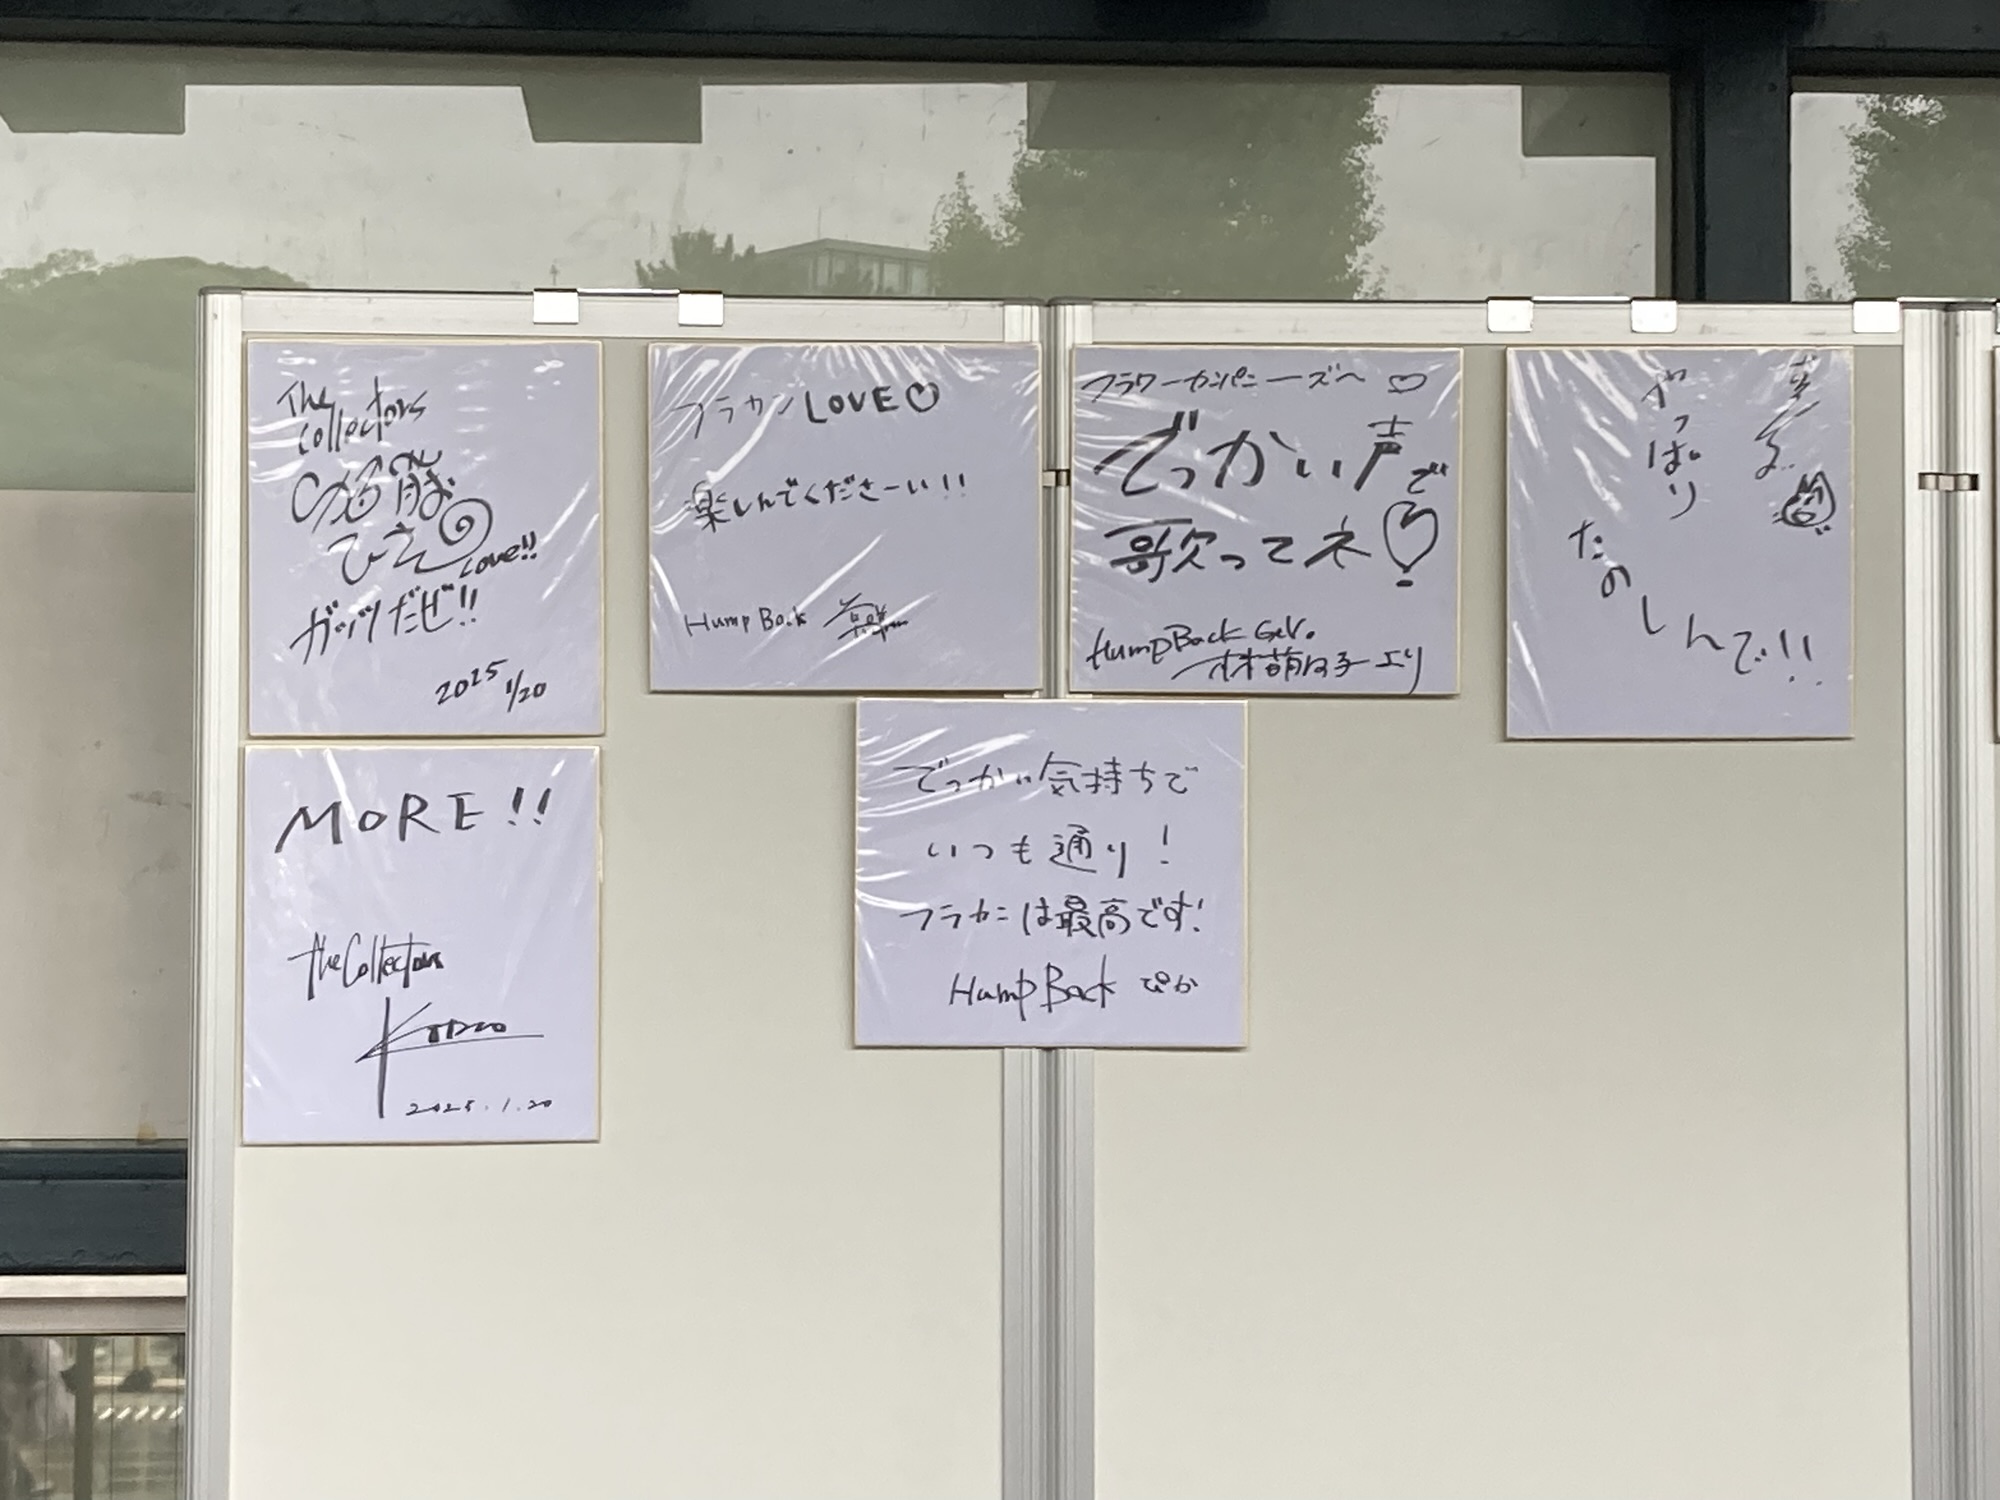 The
Collectors
ひさし
Love!!
ガッツだぜ!!
2025 1/20
MORE!!
the Collectors
2025.1.20
フラカン LOVE♡
楽しんでくださーい!!
Hump Back
フラワーカンパニーズへ♡
でっかい声で
歌ってネ
Hump Back Gt.Vo.
林萌々子 より
でっかい気持ちで
いつも通り!
フラカンは最高です!
Hump Back ぴか
やっぱり
たのしんで!!